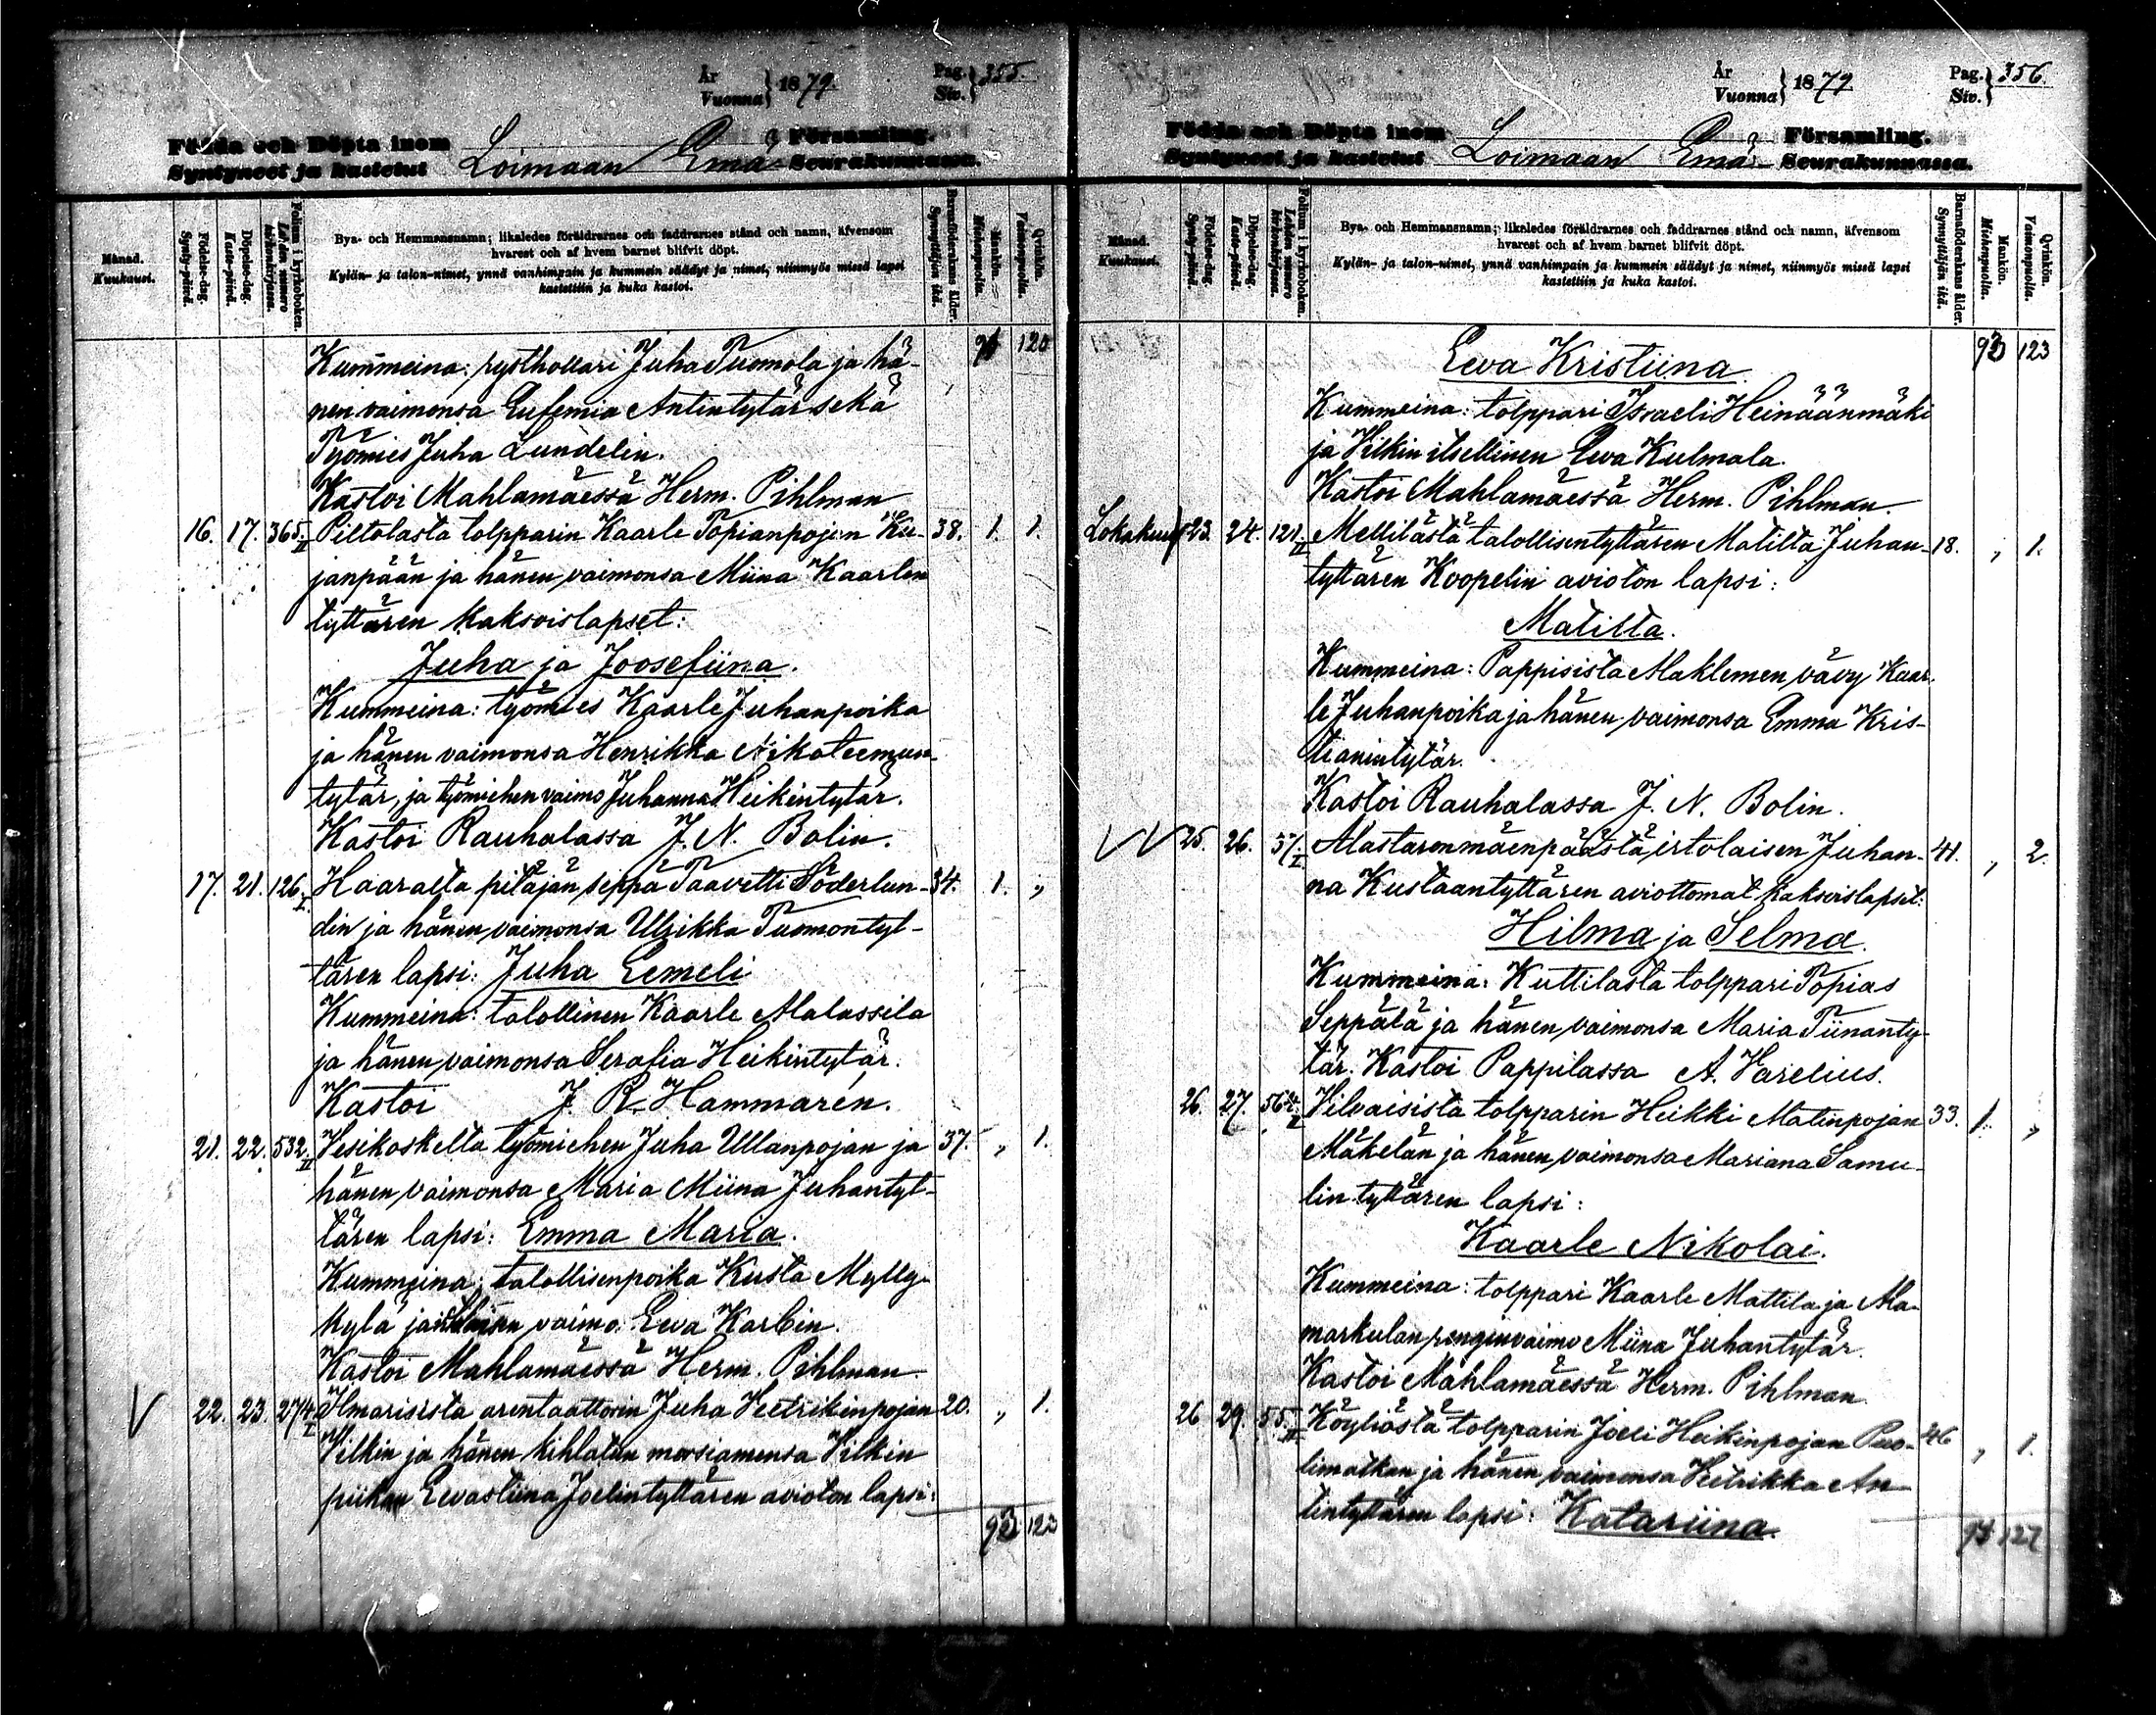 År
Vuonna } 1879. Pag. Siv. } 355.
Födda och Döpta inom Församling.
Syntyneet ja kastetut Loimaan Emä Seurakunnassa.
Månad. Kuukausi.
Födelse-dag. Synty-päivä.
Döpelse-dag. Kaste-päivä.
Folium i kyrkoboken. Lehden numero kirkonkirjassa.
Bya- och Hemmansnamn; likaledes föräldrarnes och faddrarnes stånd och namn, äfvensom
hvarest och af hvem barnet blifvit döpt.
Kylän- ja talon-nimet, ynnä vanhimpain ja kummein säädyt ja nimet, niinmyös missä lapsi
kastettiin ja kuka kastoi.
Barnaföderskans ålder. Synnyttäjän ikä.
Mankön. Miehenpuolia.
Qvinkön. Vaimonpuolia.
120
Kummeina: rysthollari Juha Tuomola ja hä-
nen vaimonsa Eufemia Antintytär sekä
Työmies Juha Lundelin.
Kastoi Mahlamäessä Herm. Pihlman
16. 17. 365. II Piltolasta tolpparin Kaarle Topianpojan Ku- 38. 1. 1.
janpään ja hänen vaimonsa Miina Kaarlen
tyttären kaksoislapset:
Juha ja Joosefiina.
Kummeina: työmies Kaarle Juhanpoika
ja hänen vaimonsa Henrikka Nikoteemun-
tytär, ja työmiehen vaimo Juhanna Heikintytär.
Kastoi Rauhalassa J. N. Bolin.
17. 21. 126. I. Haaralta pitäjän seppä Taavetti Söderlun- 34. 1. „
din ja hänen vaimonsa Ulrikka Tuomontyt-
tären lapsi: Juha Eemeli
Kummeina: talollinen Kaarle Alalassila
ja hänen vaimonsa Serafia Heikintytär.
Kastoi J. R. Hammarén.
21. 22. 532. II Vesikoskelta työmiehen Juha Ullanpojan ja 37. „ 1.
hänen vaimonsa Maria Miina Juhantyt-
tären lapsi: Emma Maria.
Kummeina: talollisenpoika Kusta Mylly-
kylä ja vaimo Eeva Karlin.
Kastoi Mahlamäessä Herm. Pihlman
V 22. 23. 274. I Ilmarisista arentaattorin Juha Veetrikinpojan 20. „ 1.
Vilkin ja hänen kihlatun morsiamensa Vilkin
piikan Eevastiina Joelintyttären avioton lapsi:
93 123
År
Vuonna } 1879 Pag. Siv. } 356.
Födda och Döpta inom Församling.
Syntyneet ja kastetut Loimaan Emä Seurakunnassa.
Månad. Kuukausi.
Födelse-dag. Synty-päivä.
Döpelse-dag. Kaste-päivä.
Folium i kyrkoboken. Lehden numero kirkonkirjassa.
Bya- och Hemmansnamn; likaledes föräldrarnes och faddrarnes stånd och namn, äfvensom
hvarest och af hvem barnet blifvit döpt.
Kylän- ja talon-nimet, ynnä vanhimpain ja kummein säädyt ja nimet, niinmyös missä lapsi
kastettiin ja kuka kastoi.
Barnaföderskans ålder. Synnyttäjän ikä.
Mankön. Miehenpuolia.
Qvinkön. Vaimonpuolia.
93 123
Eeva Kristiina.
Kummeina: tolppari Israeli Heinäänmäki
ja Vilkin itsellinen Eeva Kulmala.
Kastoi Mahlamäessä Herm. Pihlman.
Lokakuu 23. 24. 121. II Mellilästä talollisentyttären Matilta Juhan- 18. „ 1.
tyttären Koopelin avioton lapsi:
Matilta.
Kummeina: Pappisista Alaklemen vävy Kaar-
le Juhanpoika ja hänen vaimonsa Emma Kris-
tianintytär.
Kastoi Rauhalassa J. N. Bolin.
VV 25. 26. 57. I Alastaronmäenpäästä irtolaisen Juhan- 41. „ 2.
na Kustaantyttären aviottomat kaksoislapset:
Hilma ja Selma.
Kummeina: Kuttilasta tolppari Topias
Seppälä ja hänen vaimonsa Maria Tiinanty-
tär. Kastoi Pappilassa A. Varelius.
26. 27. II Vilvaisista tolpparin Heikki Matinpojan 33. 1. „
Mäkelän ja hänen vaimonsa Mariana Samu-
lintyttären lapsi:
Kaarle Nikolai.
Kummeina: tolppari Kaarle Mattila ja Ala-
markulan renginvaimo Miina Juhantytär.
Kastoi Mahlamäessä Herm. Pihlman
26 29. 55. II Köyliöstä tolpparin Joeli Heikinpojan Puo- 46 „ 1.
limatkan ja hänen vaimonsa Veetrikka An-
tintyttären lapsi: Katariina.
127